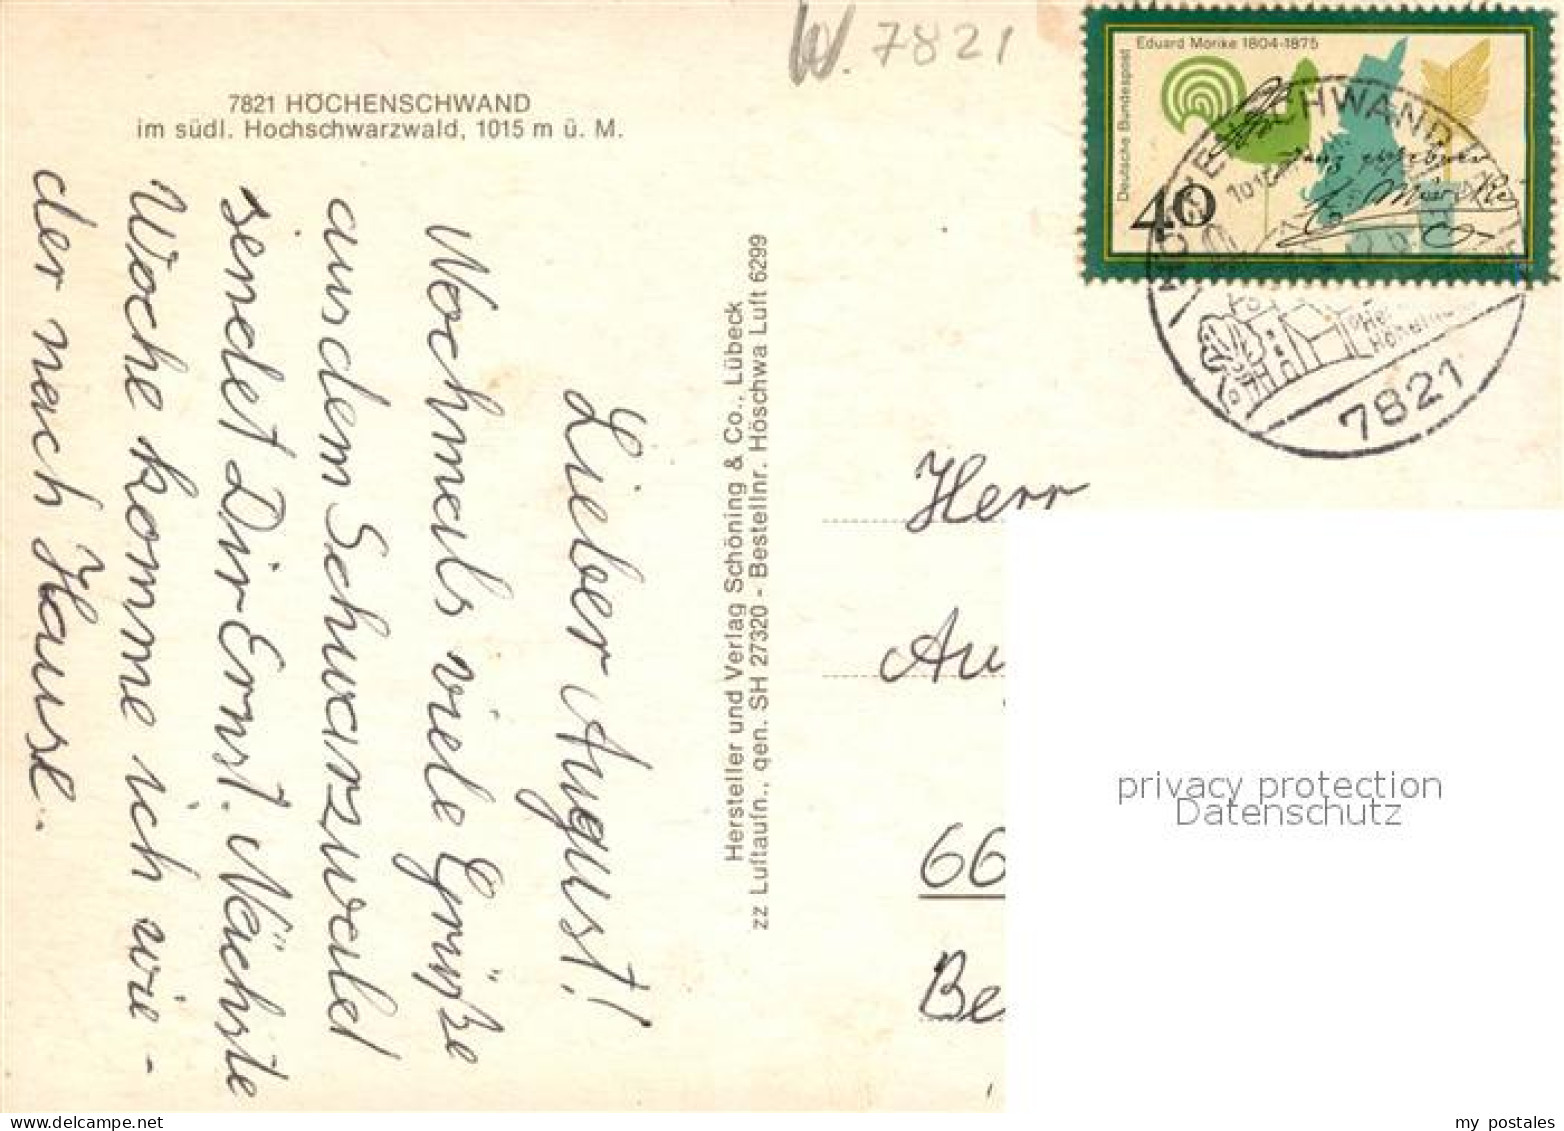 W. 7821
7821 HÖCHENSCHWAND
im südl. Hochschwarzwald, 1015 m ü. M.
Lieber August!
Nochmals viele Grüße
aus dem Schwarzwald
sendet Dir Ernst. Nächste
Woche komme ich wie-
der nach Hause.
Hersteller und Verlag Schöning & Co., Lübeck
zz Luftaufn., gen. SH 27320 - Bestellnr. Höschwa Luft 6299
Eduard Mörike 1804-1875
Deutsche Bundespost
40
7821
Herr
Au
66
Be
privacy protection
Datenschutz
my postales